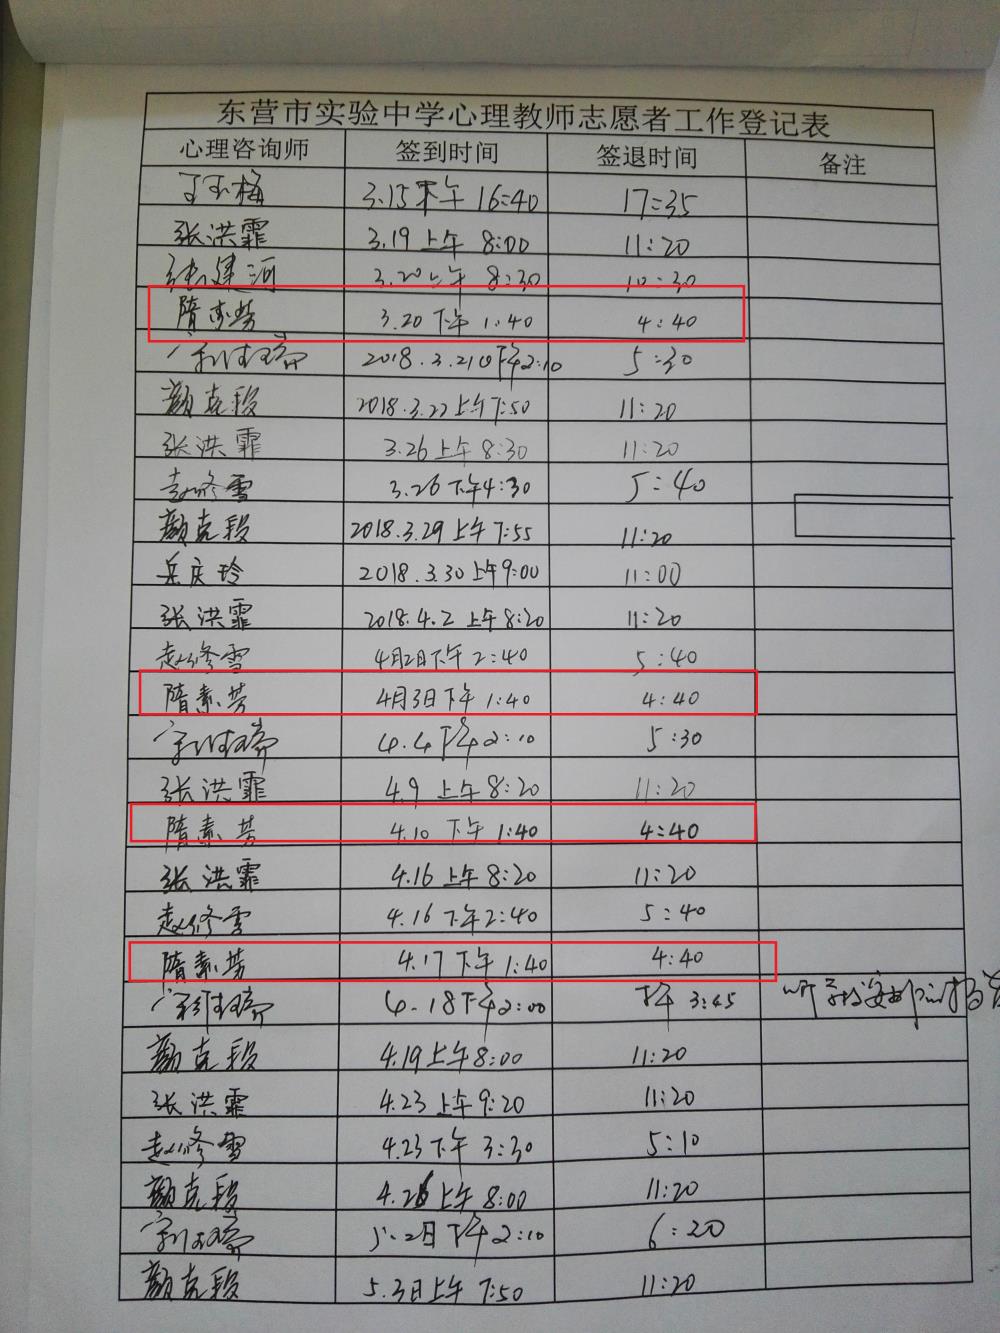 东营市实验中学心理教师志愿者工作登记表
心理咨询师 签到时间 签退时间 备注
王玉梅 3.15 下午 16:40 17:35
张洪霏 3.19 上午 8:00 11:20
张建河 3.20 上午 8:30 10:30
隋素芳 3.20 下午 1:40 4:40
2018.3.21 下午2:10 5:30
颜克段 2018.3.22上午7:50 11:20
张洪霏 3.26 上午 8:30 11:20
赵修雪 3.26 下午4:30 5:40
颜克段 2018.3.29 上午 7:55 11:20
岳庆玲 2018.3.30 上午9:00 11:00
张洪霏 2018.4.2 上午 8:20 11:20
赵修雪 4月2日下午 2:40 5:40
隋素芳 4月3日下午 1:40 4:40
4.4 下午2:10 5:30
张洪霏 4.9 上午 8:20 11:20
隋素芳 4.10 下午 1:40 4:40
张洪霏 4.16 上午 8:20 11:20
赵修雪 4.16 下午2:40 5:40
隋素芳 4.17 下午 1:40 4:40
4.18下午2:00 下午 3:45
颜克段 4.19上午8:00 11:20
张洪霏 4.23 上午 9:20 11:20
赵修雪 4.23 下午 3:30 5:10
颜克段 4.26 上午 8:00 11:20
5.2日 下午2:10 6:20
颜克段 5.3日上午 7:50 11:20